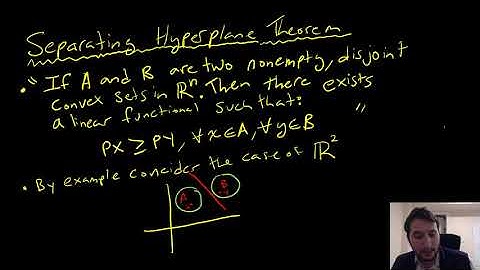 Separating Hyperplane Theorem
• " If A and B are two nonempty, disjoint
convex sets in ℝⁿ. Then there exists
a linear functional such that:
PX ≥ PY, ∀x∈A, ∀y∈B "
• By example consider the case of ℝ²
A B